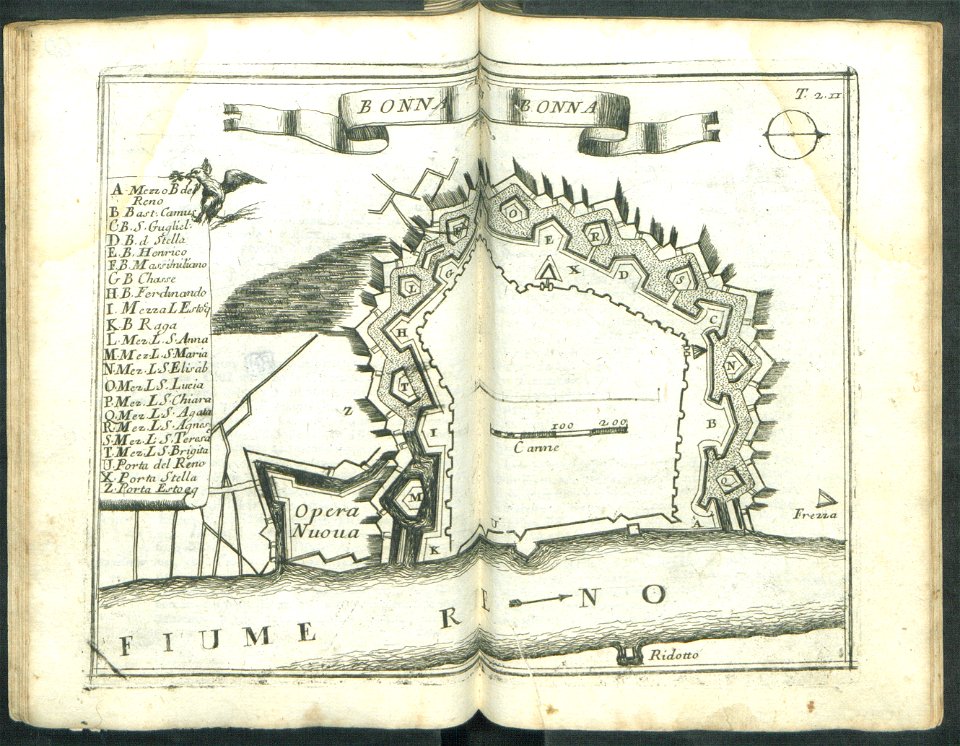 BONNA BONNA
T. 2.11
A Mezzo B del
Reno
B Bast. Camus
C B. S. Gugliel.
D B. d Stella
E B. Henrico
F B. Massimiliano
G B Chasse
H B. Ferdinando
I. Mezza L Estoq
K B Raga
L. Mez. L. S. Anna
M. Mez. L. S. Maria
N. Mez. L. S. Elisab
O. Mez. L. S. Lucia
P. Mez. L. S. Chiara
Q. Mez. L. S. Agata
R. Mez. L. S. Agnes
S. Mez. L. S. Teresa
T. Mez. L. S. Brigita
U. Porta del Reno
X. Porta Stella
Z. Porta Estoeq
O
P
E
R
G
X
D
S
L
C
H
N
T
Z
I
B
100 200
Canne
M
Q
Opera
Nuoua
U
A
Frezza
K
FIUME RENO
Ridotto